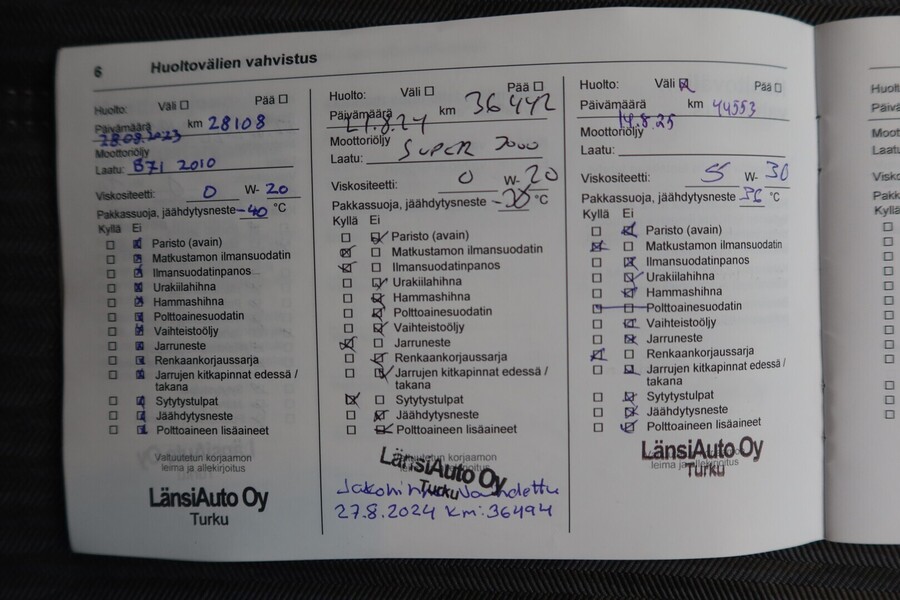 6 Huoltovälien vahvistus
Huolto: Väli ☐ Pää ☐
Päivämäärä km 28108
28.08.2023
Moottoriöljy
Laatu: B71 2010
Viskositeetti: 0 W- 20
Pakkassuoja, jäähdytysneste -40 °C
Kyllä Ei
Paristo (avain)
Matkustamon ilmansuodatin
Ilmansuodatinpanos
Urakiilahihna
Hammashihna
Polttoainesuodatin
Vaihteistoöljy
Jarruneste
Renkaankorjaussarja
Jarrujen kitkapinnat edessä /
takana
Sytytystulpat
Jäähdytysneste
Polttoaineen lisäaineet
Valtuutetun korjaamon
leima ja allekirjoitus
LänsiAuto Oy
Turku
Huolto: Väli ☐ Pää ☐
Päivämäärä km 36442
Moottoriöljy
Laatu: SUPER
Viskositeetti: 0 W- 20
Pakkassuoja, jäähdytysneste °C
Kyllä Ei
Paristo (avain)
Matkustamon ilmansuodatin
Ilmansuodatinpanos
Urakiilahihna
Hammashihna
Polttoainesuodatin
Vaihteistoöljy
Jarruneste
Renkaankorjaussarja
Jarrujen kitkapinnat edessä /
takana
Sytytystulpat
Jäähdytysneste
Polttoaineen lisäaineet
Valtuutetun korjaamon
LänsiAuto Oy
Turku
Jakohihna Vaihdettu
27.8.2024 Km: 36494
Huolto: Väli ☒ Pää ☐
Päivämäärä km 44553
14.8.25
Moottoriöljy
Laatu:
Viskositeetti: 5 W- 30
Pakkassuoja, jäähdytysneste °C
Kyllä Ei
Paristo (avain)
Matkustamon ilmansuodatin
Ilmansuodatinpanos
Urakiilahihna
Hammashihna
Polttoainesuodatin
Vaihteistoöljy
Jarruneste
Renkaankorjaussarja
Jarrujen kitkapinnat edessä /
takana
Sytytystulpat
Jäähdytysneste
Polttoaineen lisäaineet
LänsiAuto Oy
leima ja allekirjoitus
Turku